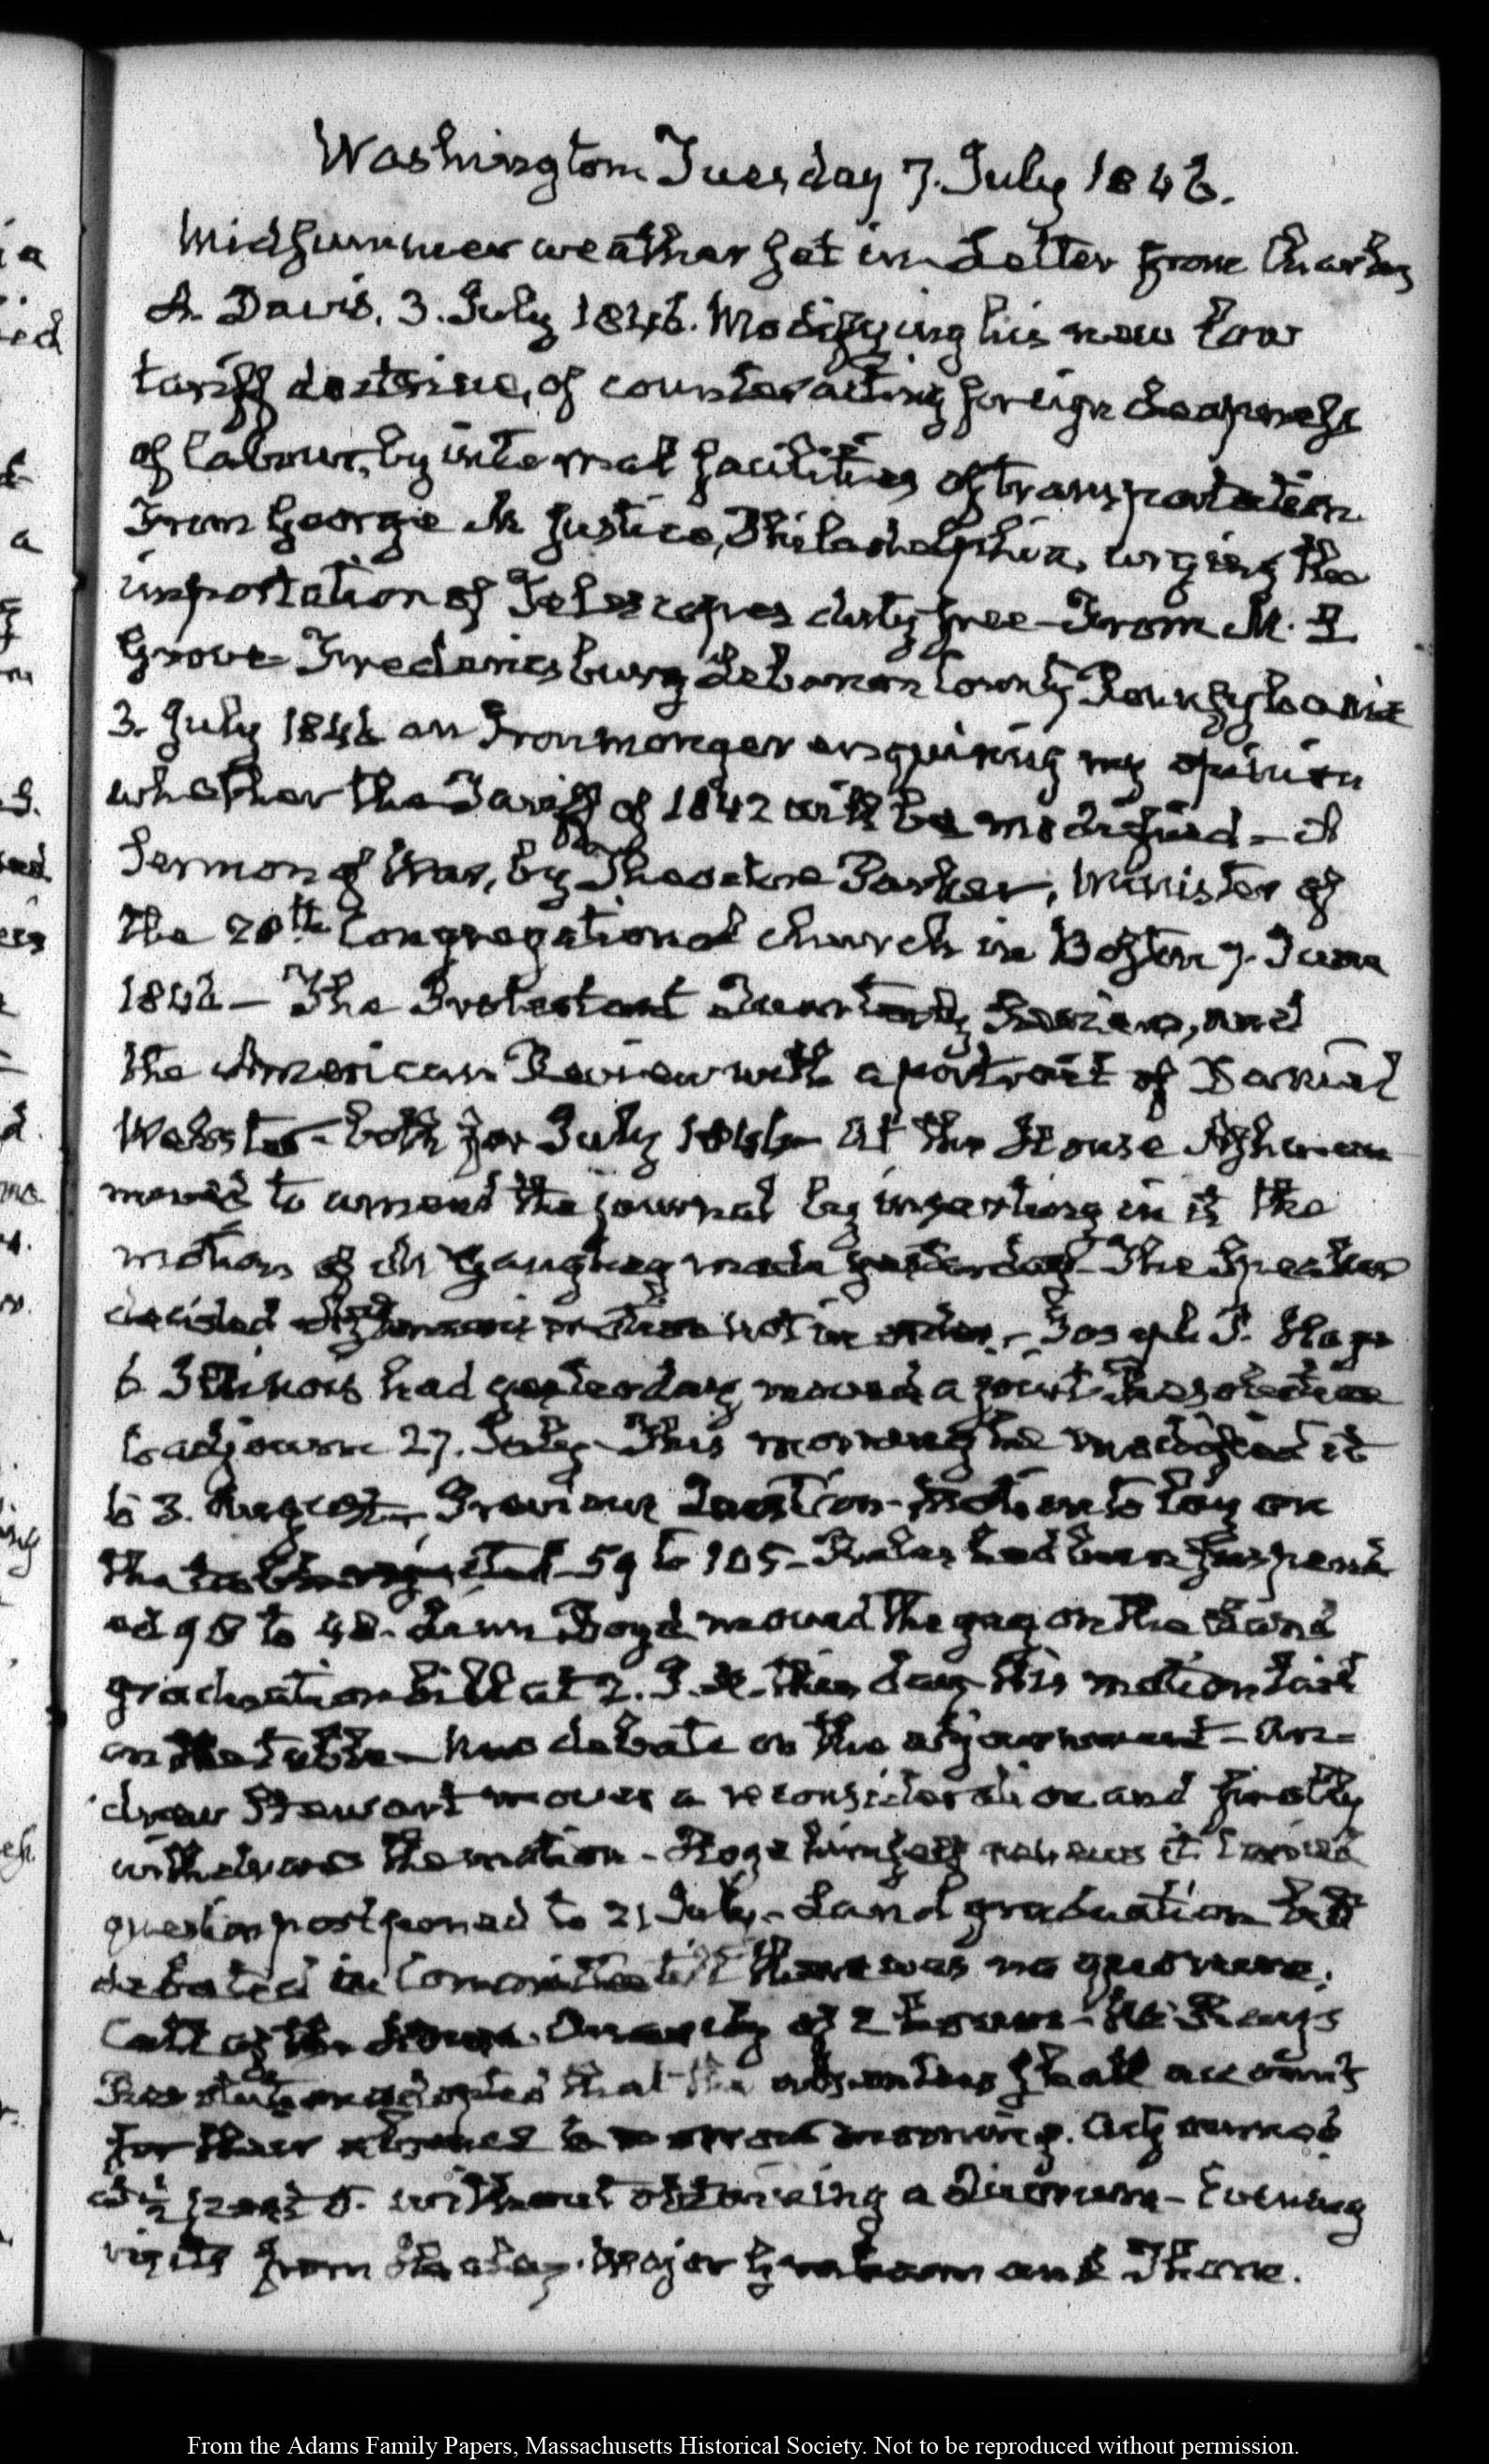 Washington Tuesday 7. July 1846.
Midsummer weather set in Letter from Charles
A. Davis, 3. July 1846. Modifying his new low
tariff doctrine, of counteracting foreign cheapness
of labour, by internal facilities of transportation
From George M Justice, Philadelphia, urging the
importation of Telescopes duty free—From M. B
Grove Fredericksburg Lebanon County Pennsylvania
3. July 1846 an Ironmonger enquiring my opinion
whether the Tariff of 1842 will be modified—A
Sermon of War, by Theodore Parker, Minister of
the 28th Congregational church in Boston 7. June
1846—The Protestant Quarterly Review, and
the American Review with a portrait of Daniel
Webster—both for July 1846—At the House Ashmun
moved to amend the journal by inserting in it the
motion of Mr made yesterday—The Speaker
decided motion not in order.—Joseph P. Hoge
6 Illinois had yesterday moved a joint Resolution
to adjourn 27. July—This morning he modified it
to 3. August—Previous Question—motion to lay on
the table rejected 59 to 105—Rules had been suspend
ed 98 to 48. Linn Boyd moved the gag on the Land
graduation bill at 2. P.M. this day—his motion laid
on the table—two debate on the adjournment—An=
drew Stewart moves a reconsideration and finally
withdraws the motion—Hoge himself renews it
question postponed to 21 July—Land graduation bill
debated in Committee till there was no quorum.
Call of the House. of 2 hours—
Resolution adopted that the absentees shall account
for their absence to-morrow morning. Adjourned
at ½ past 5. without obtaining a Quorum—Evening
visits from Major Graham and Stone.
From the Adams Family Papers, Massachusetts Historical Society. Not to be reproduced without permission.